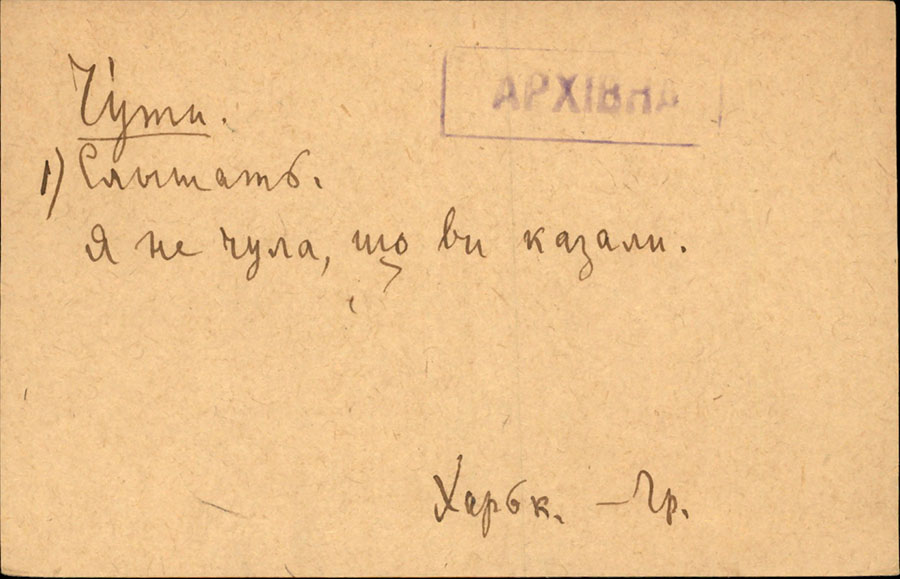 Чути.
АРХІВНА
1) Слышать.
Я не чула, що ви казали.
Харьк. – Гр.